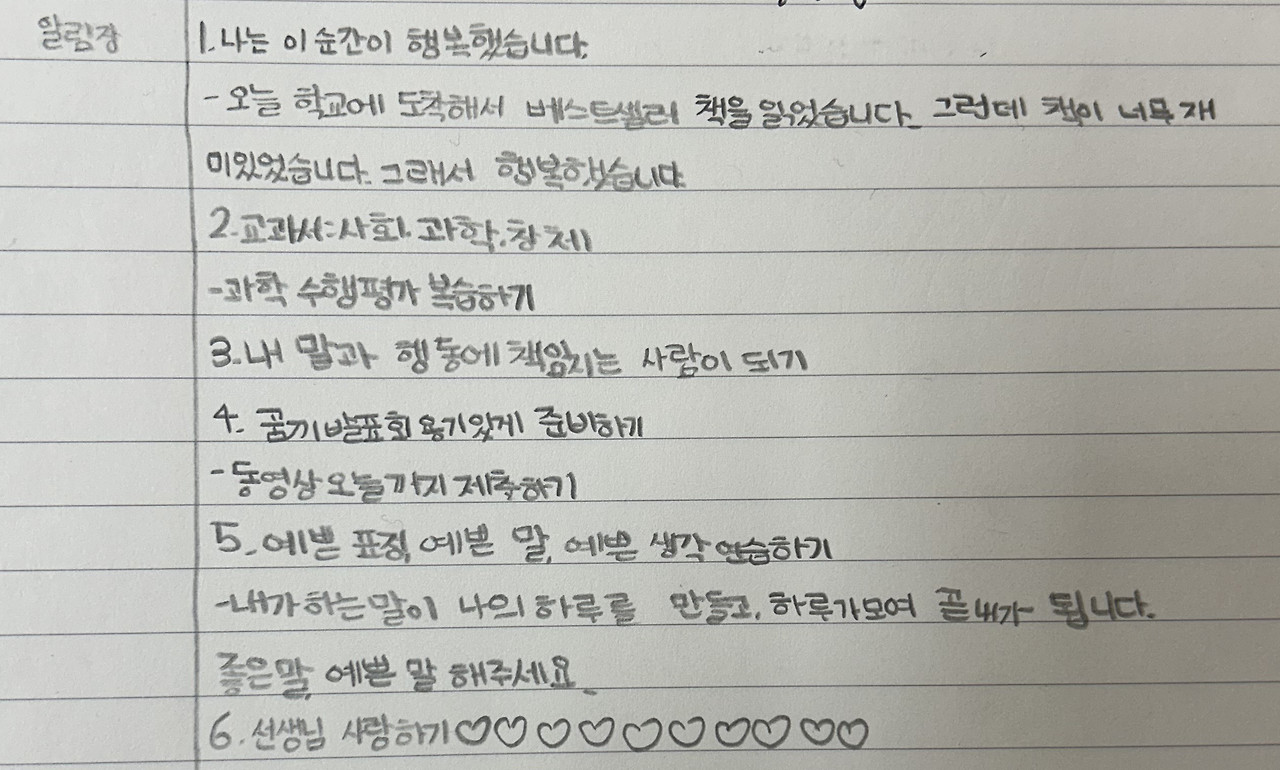 알림장
1. 나는 이 순간이 행복했습니다.
- 오늘 학교에 도착해서 베스트셀러 책을 읽었습니다. 그런데 책이 너무 재
미있었습니다. 그래서 행복했습니다
2. 교과서: 사회, 과학, 창체
- 과학 수행평가 복습하기
3. 내 말과 행동에 책임지는 사람이 되기
4. 꿈끼발표회 용기있게 준비하기
- 동영상 오늘까지 제출하기
5. 예쁜 표정, 예쁜 말, 예쁜 생각 연습하기
- 내가 하는 말이 나의 하루를 만들고, 하루가 모여 곧 내가 됩니다.
좋은 말, 예쁜 말 해주세요.
6. 선생님 사랑하기♡♡♡♡♡♡♡♡♡♡